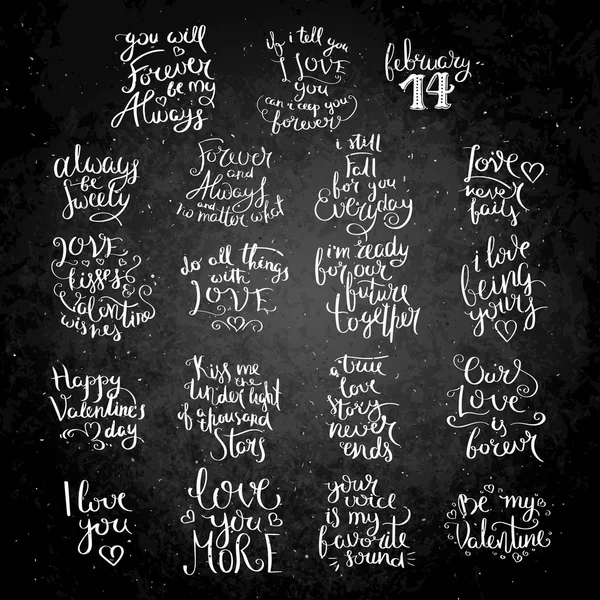 you will
Forever
be my
Always
if i tell you
I LOVE
you
can i keep you
forever
february
14
always
be
sweety
Forever
and
Always
and
no matter what
i still
Fall
for you
Everyday
Love
never
fails
LOVE
kisses
Valentine
wishes
do all things
with
LOVE
i'm ready
for our
future
together
i love
being
yours
Happy
Valentine's
day
Kiss me
the
under light
of a thousand
Stars
a true
love
story
never
ends
Our
Love
is
forever
I love
you
love
you
MORE
your
voice
is my
favorite
sound
Be my
Valentine